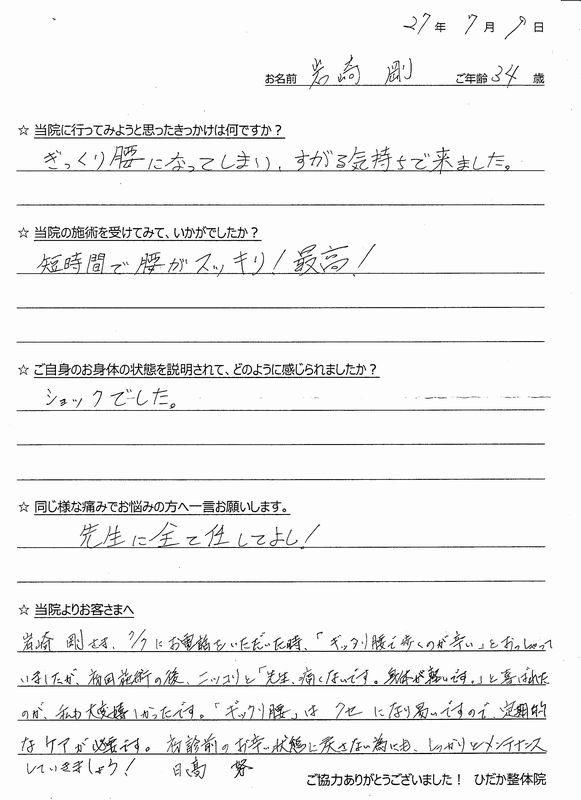 27年 7月 9日
お名前 岩崎 剛 ご年齢 34 歳
☆ 当院に行ってみようと思ったきっかけは何ですか？
ぎっくり腰になってしまい、すがる気持ちで来ました。
☆ 当院の施術を受けてみて、いかがでしたか？
短時間で腰がスッキリ！最高！
☆ ご自身のお身体の状態を説明されて、どのように感じられましたか？
ショックでした。
☆ 同じ様な痛みでお悩みの方へ一言お願いします。
先生に全て任してよし！
☆ 当院よりお客さまへ
岩崎 剛さま、7/7にお電話をいただいた時、「ギックリ腰で歩くのが辛い」とおっしゃって
いましたが、初回施術の後、ニッコリと「先生、痛くないです。身体が軽いです。」と喜ばれた
のが、私も大変嬉しかったです。「ギックリ腰」は クセ になり易いですので、定期的
な ケアが必要です。 初診前のお辛い状態に戻さない為にも、しっかりとメンテナンス
していきましょう！ 日高
ご協力ありがとうございました！ ひだか整体院